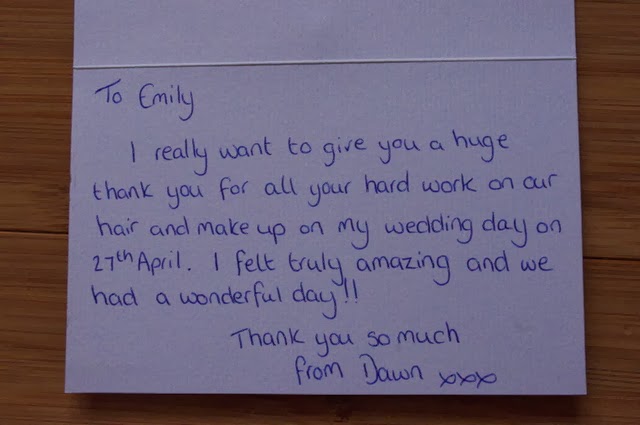 To Emily
I really want to give you a huge
thank you for all your hard work on our
hair and make up on my wedding day on
27th April. I felt truly amazing and we
had a wonderful day!!
Thank you so much
from Dawn xxxx